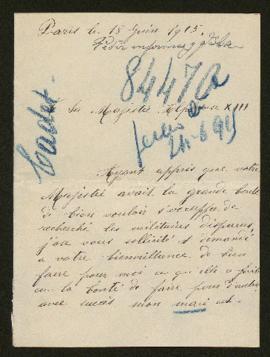 Paris le 15 Juin 1915.
Pedir informes
84470
A Sa Majesté Alphonse XIII
Cadet
24-6-915
Ayant appris que votre
Majesté avait la grande bonté
de bien vouloir s'occuper de
recherché les militaires disparus,
j'ose vous sollicité et demandé
a votre bienveillance de bien
faire pour moi ce qu'elle a
eu la bonté de faire pour d'autres
avec succès mon mari